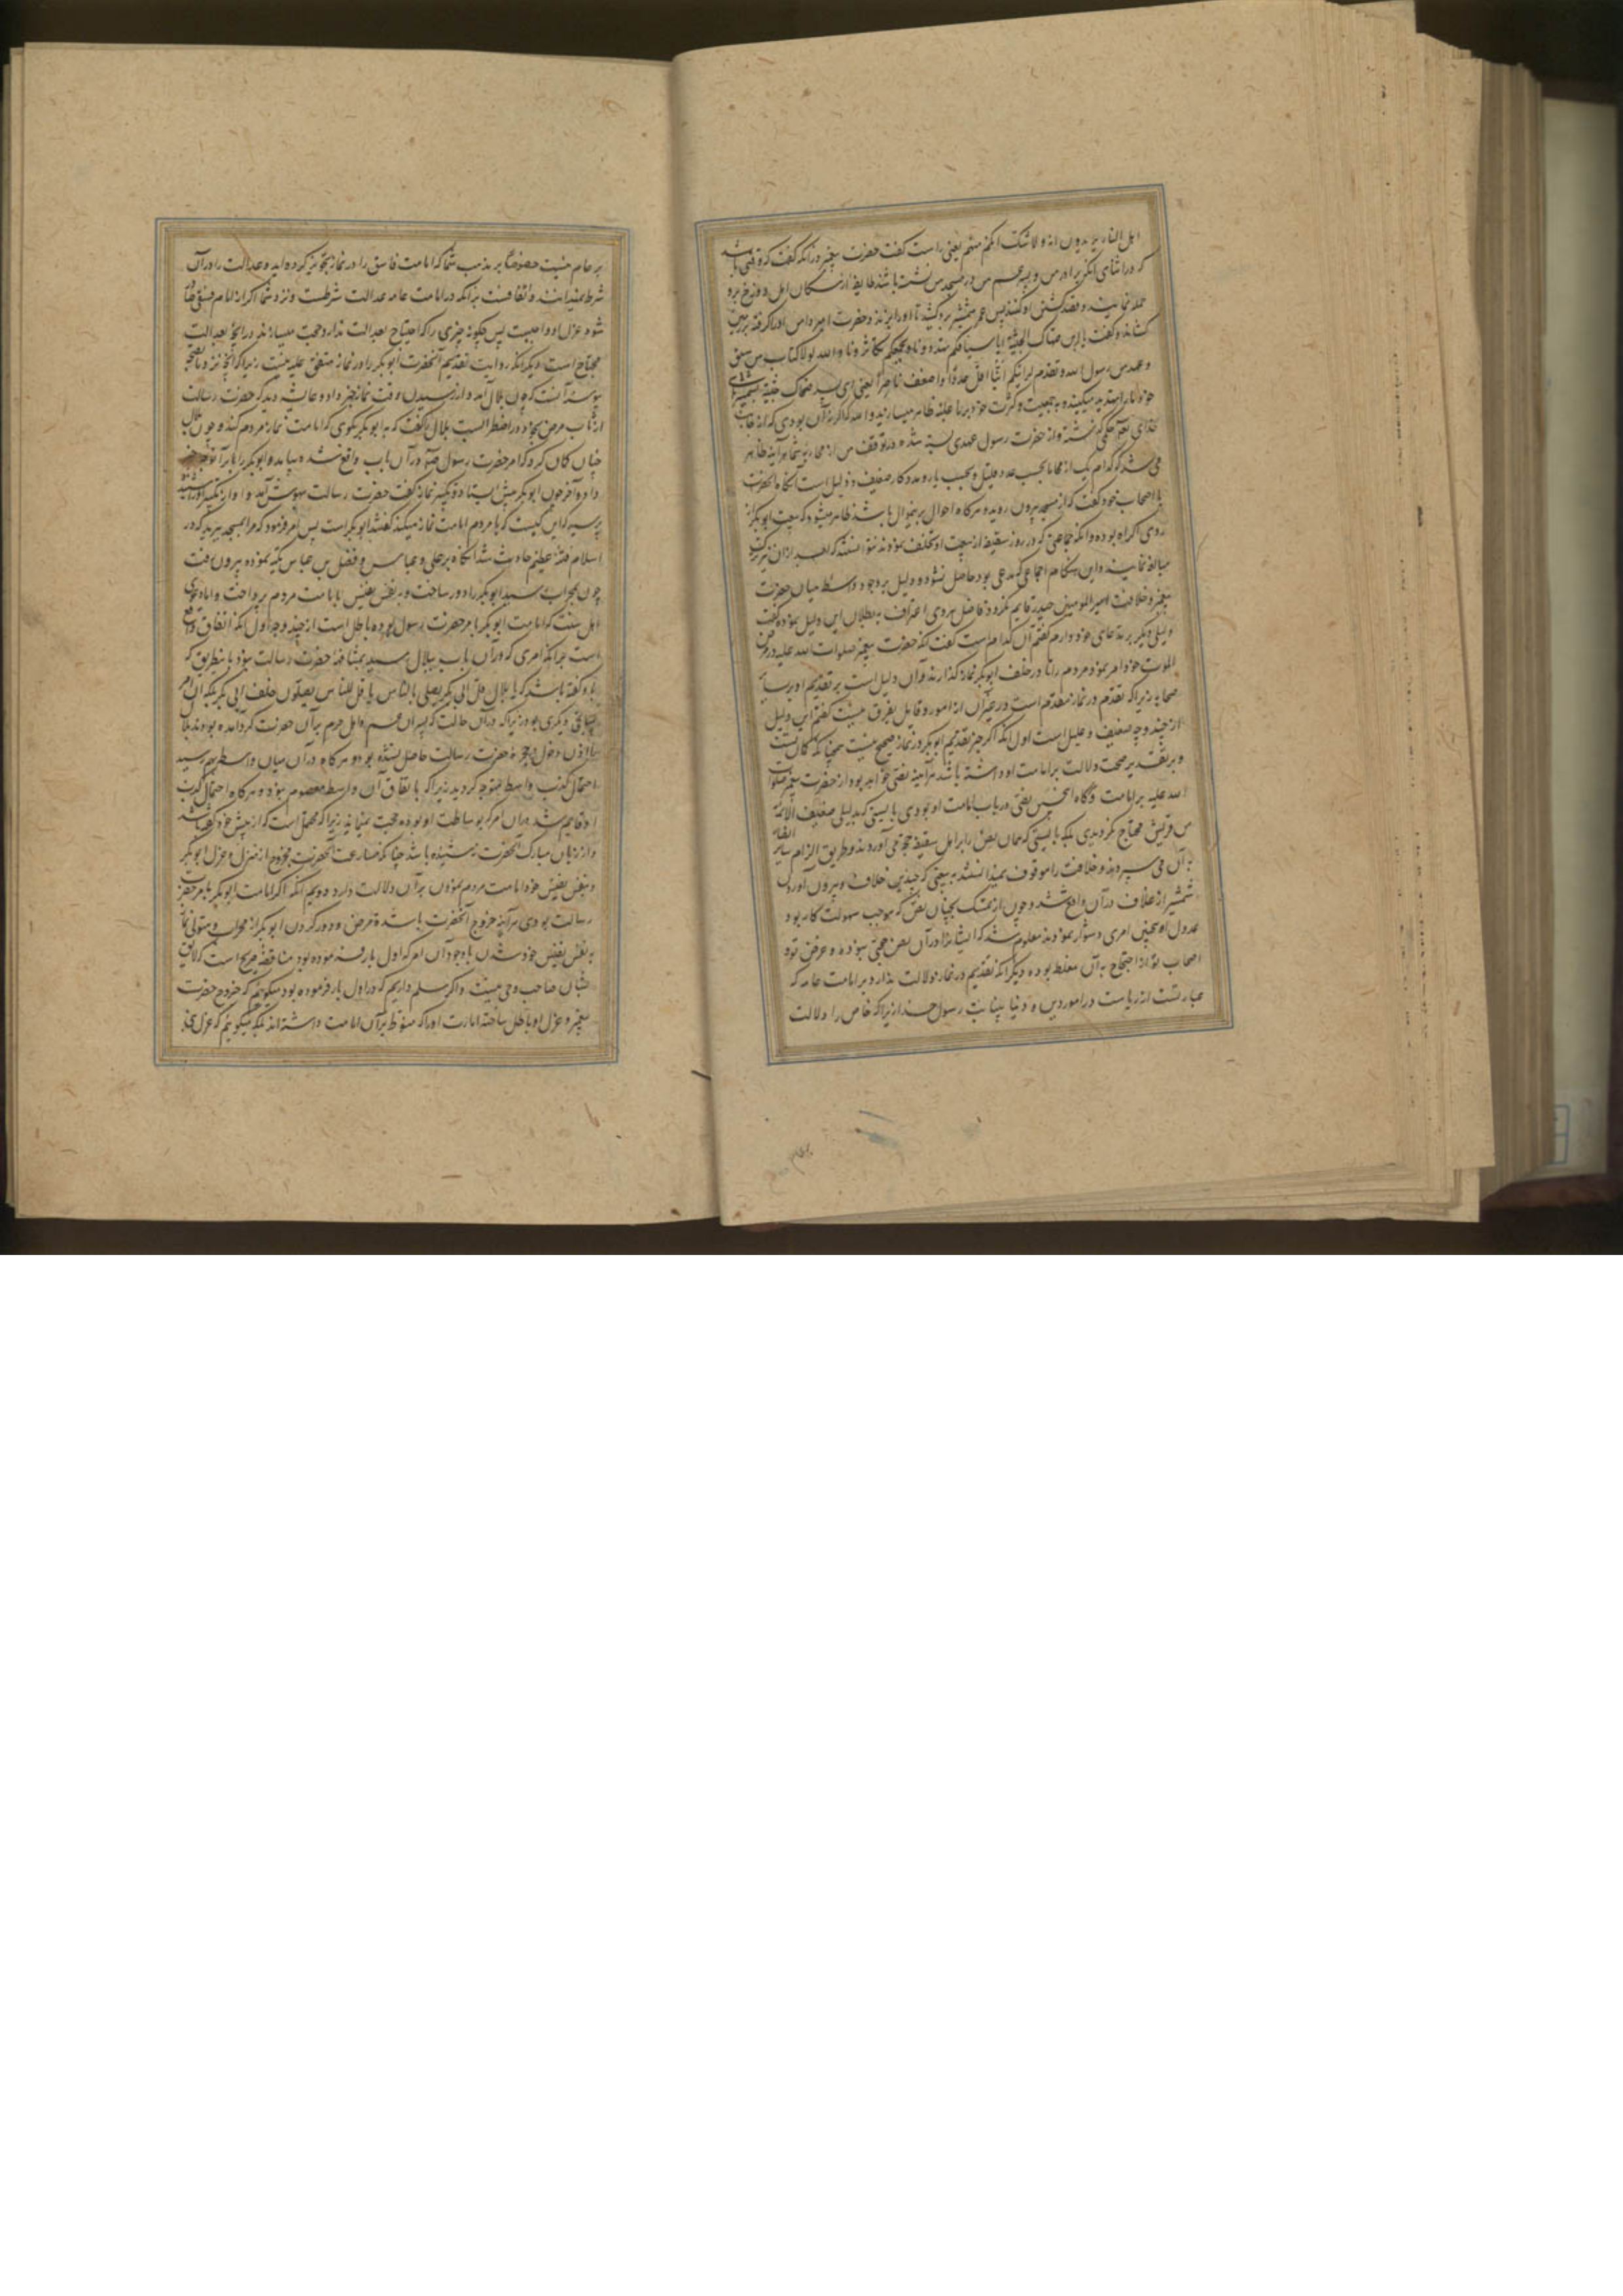 اهل النار یریدون انه ولا شک انکم منهم یعنی راست گفت حضرت پیغمبر در آنکه گفت که وقتی باشد
که در اثنای آنکه برادر من و پسر عم من در مسجد من نشسته باشد طایفه از سکان اهل دوزخ برو
حمله نمایند و قصد کشتن او کنند پس عمر شمشیر برکشید تا او را بزند و حضرت امیر دامن او را گرفته بر زمین
کشاند و گفت یا ابن صهاک الحبشیة ابأسیافکم تهددونا و بجمعکم تکاثرونا والله لولا کتاب من الله سبق
و عهد من رسول الله تقدم لرأیتکم اینا اقل عددا و اضعف ناصرا یعنی ای پسر صهاک حبشیه بشمشیرهای
خود ما را تهدید میکنید و بجمعیت و کثرت خود بر ما غلبه ظاهر میسازید والله که اگر نه آن بودی که از جانب
خدای تعالی حکمی گذشته و از حضرت رسول عهدی بسته شده در توقف من از محاربه شما هر آینه ظاهر
می شد که کدام یک از ما و شما بحسب عدد قلیل و بحسب یار و مددکار ضعیف و ذلیل است آنگاه آنحضرت
با اصحاب خود گفت که از مسجد بیرون روید و هرگاه احوال برین منوال باشد ظاهر میشود که بیعت ابوبکر از
روی اکراه بوده و آنکه جماعتی که در روز سقیفه از بیعت او تخلف نمودند نتوانستند که بعد از آن ترک
مبالغه نمایند و این هنگام اجماعی که مدعی بود حاصل نشود و دلیل بر وجود واسطه میان حضرت
پیغمبر و خلافت امیرالمومنین حیدر قایم نگردد فاضل هروی اعتراف به بطلان این دلیل نموده گفت
دلیلی دیگر بر مدعای خود دارم گفتم آن کدام است گفت آنکه حضرت پیغمبر صلوات الله علیه در مرض
الموت خود امر نمود مردم را تا در خلف ابوبکر نماز گذارند و آن دلیل است بر تقدیم او بر سایر
صحابه زیرا که مقدم در نماز مقدم است در غیر آن از امور و قایل بفرق نیست گفتم این دلیل
از چند وجه ضعیف و علیل است اول آنکه اگر خبر تقدیم ابوبکر در نماز صحیح نیست همچنانکه گمان تست
و بر تقدیر صحت دلالت بر امامت او داشته باشد هر آینه نصی خواهد بود از حضرت پیغمبر صلوات
الله علیه بر امامت و گاه اینچنین نصی در باب امامت او بودی بایستی که بدلیل ضعیف الائمة
من قریش محتاج نگردیدی بلکه بایستی که همان نص را بر اهل سقیفه حجت می آوردند و بطریق الزام سایر انصار
به آن می سپردند و خلافت را موقوف نمیدانستند به بیعتی که چندین خلاف و بیرون آوردن
شمشیر از غلاف در آن واقع شد و چون از تمسک بچنان نص که موجب سهولت کار بود
عدول بچنین امری دشوار نمودند معلوم شد که ایشانرا در آن نص حجتی نبوده و غرض تو و
اصحاب تو از احتجاج به آن مغلطه بوده دیگر آنکه تقدیم در نماز دلالت ندارد بر امامت عامه که
عبارتست از ریاست در امور دین و دنیا به نیابت رسول خدا زیرا که خاص را دلالت
بر عام نیست خصوصا بر مذهب شما که امامت فاسق را در نماز تجویز کرده اید و عدالت را در آن
شرط نمیدانند و اتفاقست بر آنکه در امامت عامه عدالت شرطست و نزد شما اگر از امام فسق ظاهر
شود عزل او واجبست پس چگونه چیزی را که احتیاج بعدالت ندارد حجت میسازند در آنچه بعدالت
محتاج است دیگر آنکه روایت تقدیم آنحضرت ابوبکر را در نماز متفق علیه نیست زیرا که آنچه نزد ما بصحت
پیوسته آنست که چون بلال آمد و از رسیدن وقت نماز خبر داد و عایشه دید که حضرت رسالت
از تاب مرض بیخود و در اضطراب است بلال را گفت که به ابوبکر بگوی که امامت نماز مردم کند و چون بلال
چنان گمان کرد که امر حضرت رسول صلعم در آن باب واقع شده بیامد و ابوبکر را بر آنوجه خبر
داد و آخر چون ابوبکر پیش ایستاد و تکبیر نماز گفت حضرت رسالت بهوش آمد و آواز تکبیر او را شنید
پرسید که این کیست که با مردم امامت نماز میکند گفتند ابوبکر است پس امر فرمود که مرا بمسجد ببرید که در
اسلام فتنه عظیم حادث شد آنگاه بر علی و عباس و فضل بن عباس تکیه نموده بیرون رفت
چون بمحراب رسید ابوبکر را دور ساخت و به نفس نفیس بامامت مردم پرداخت و اما دعوی
اهل سنت که امامت ابوبکر بامر حضرت رسول بوده باطل است از چند وجه اول آنکه اتفاق واقع
است بر آنکه امری که در آن باب ببلال رسید بمشافهه حضرت رسالت نبود باینطریق که
باو گفته باشد که یا بلال قل لابی بکر یصلی بالناس یا قل للناس یصلون خلف ابی بکر بلکه آن امر
بمیانجی دیگری بود زیرا که در آن حالت که پسران عم و اهل حرم بر آن حضرت گرد آمده بودند بلال
را اذن دخول بحجره حضرت رسالت حاصل نشده بود و هرگاه در آن میان واسطه بهم رسید
احتمال کذب بواسطه متوجه گردید زیرا که باتفاق آن واسطه معصوم نبود و هرگاه احتمال کذب
او قایم شد در آن امر که بوساطت او بوده حجت نمیماند زیرا که محتمل است که از پیش خود گفته باشد
و از زبان مبارک آنحضرت نشنیده باشد چنانکه مسارعت آنحضرت بخروج از منزل و عزل ابوبکر
و بنفس نفیس خود امامت مردم نمودن بر آن دلالت دارد دویم آنکه اگر امامت ابوبکر بامر حضرت
رسالت بودی هر آینه خروج آنحضرت با شدت مرض و دور کردن ابوبکر از محراب و متولی نماز
به نفس نفیس خود شدن با وجود آن امر که اول بار فرموده بود مناقضه صریح است که لایق
نشان صاحب وحی نیست و اگر مسلم داریم که در اول بار فرموده بود میگوئیم که خروج حضرت
پیغمبر و عزل او باطل ساخته امارت او را که متوهم بر آن امامت داشته اند بلکه میگوئیم که عزل